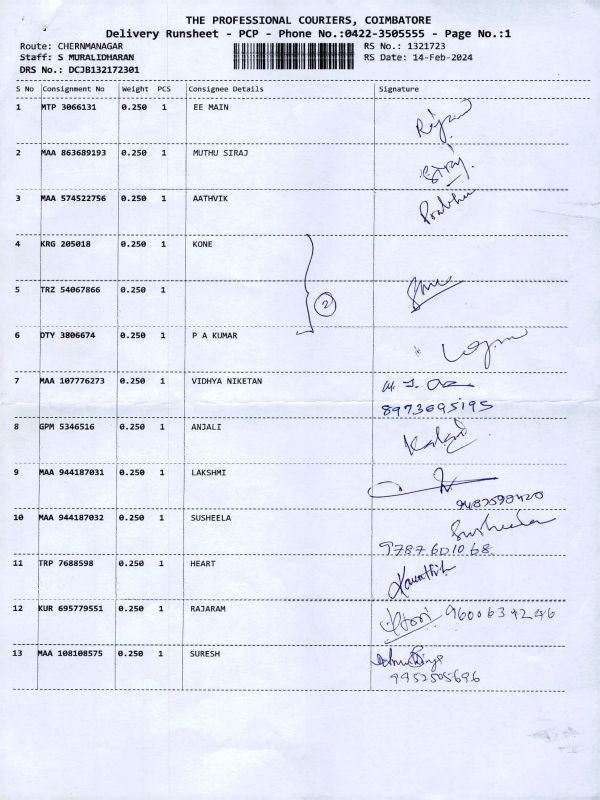 THE PROFESSIONAL COURIERS, COIMBATORE
Delivery Runsheet - PCP - Phone No.:0422-3505555 - Page No.:1
Route: CHERNMANAGAR RS No.: 1321723
Staff: S MURALIDHARAN RS Date: 14-Feb-2024
DRS No.: DCJB132172301
S No Consignment No Weight PCS Consignee Details Signature
1 MTP 3066131 0.250 1 EE MAIN
2 MAA 863689193 0.250 1 MUTHU SIRAJ
Siraj
3 MAA 574522756 0.250 1 AATHVIK Prabhu
4 KRG 205018 0.250 1 KONE
5 TRZ 54067866 0.250 1
2
6 DTY 3806674 0.250 1 P A KUMAR
7 MAA 107776273 0.250 1 VIDHYA NIKETAN
8973695195
8 GPM 5346516 0.250 1 ANJALI
9 MAA 944187031 0.250 1 LAKSHMI
10 MAA 944187032 0.250 1 SUSHEELA Susheela
9787601068
11 TRP 7688598 0.250 1 HEART
12 KUR 695779551 0.250 1 RAJARAM 9600634246
13 MAA 108108575 0.250 1 SURESH
9952505696